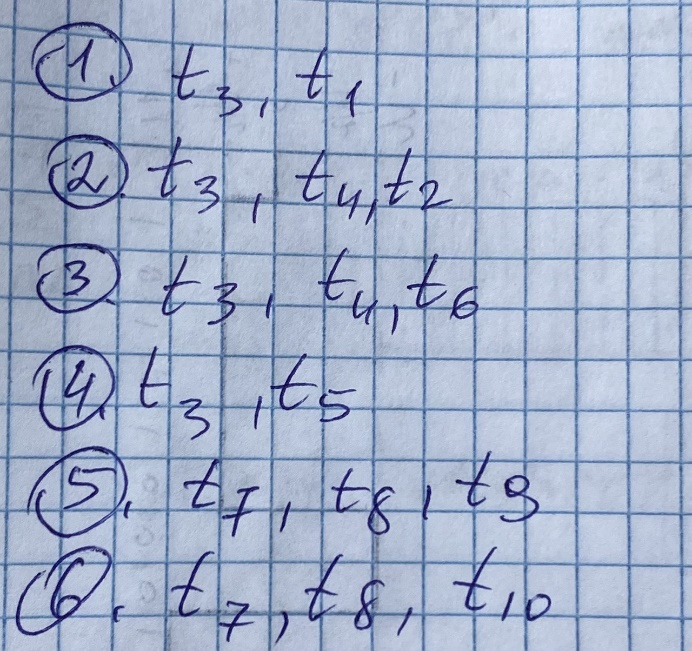 1. t₃, t₁
2. t₃, t₄, t₂
3. t₃, t₄, t₆
4. t₃, t₅
5. t₇, t₈, t₉
6. t₇, t₈, t₁₀